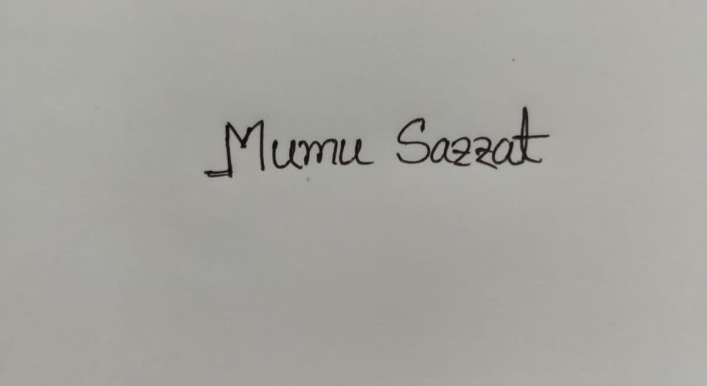 Mumu Sazzat